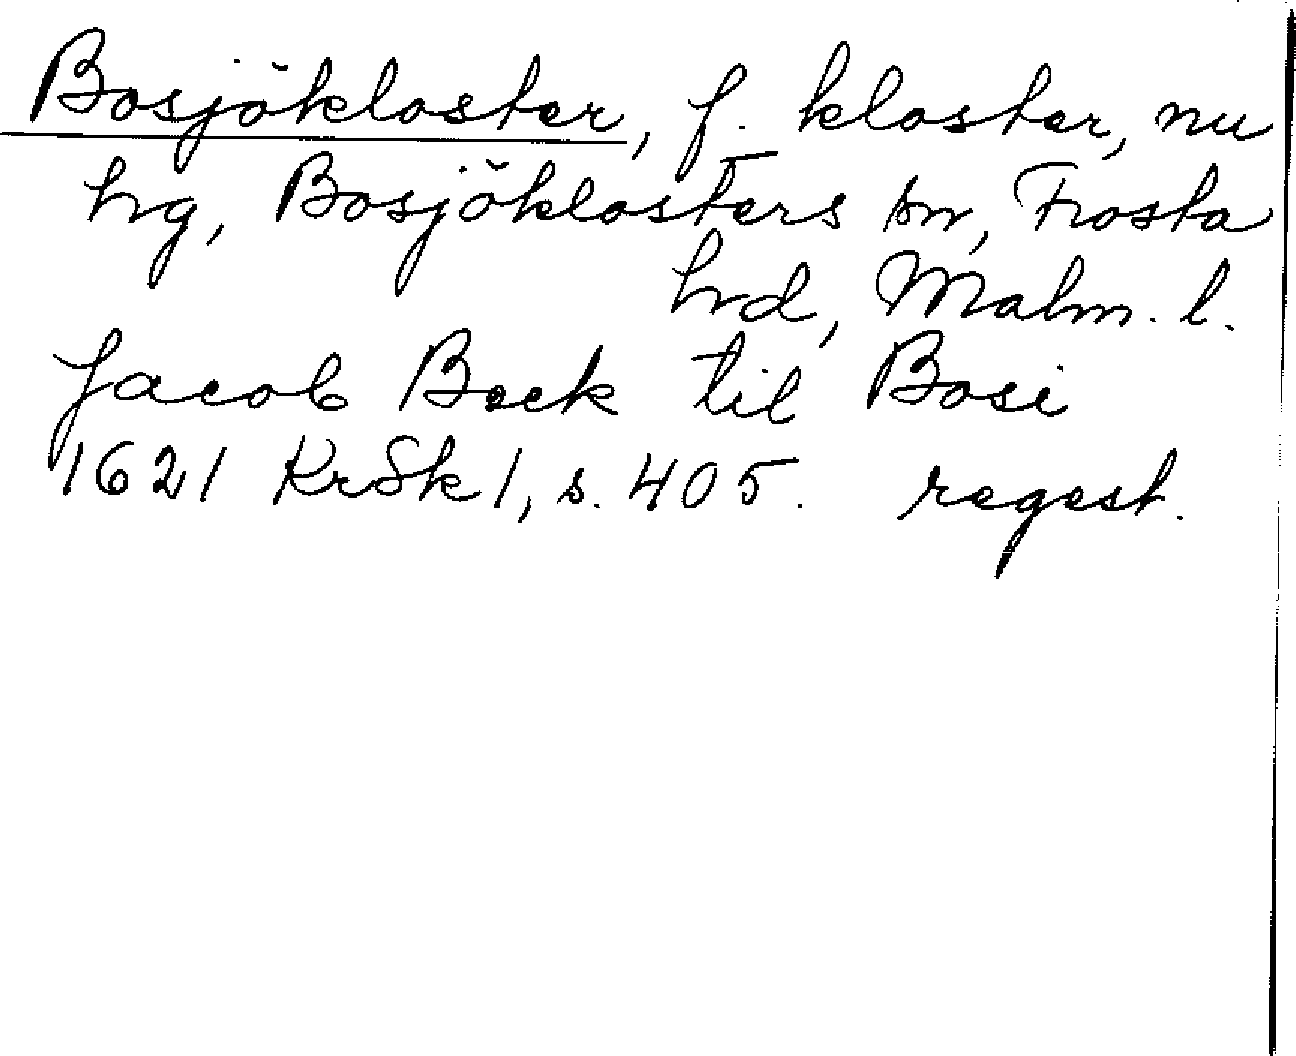 Bosjökloster, f. kloster, nu
hg, Bosjöklosters sn, Frosta
hrd, Malm. l.
Jacob Beck til Bosi
1621 KrSk 1, s. 405. regest.